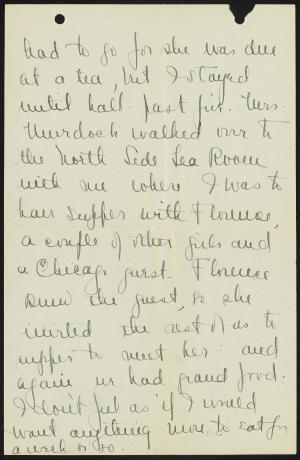 had to go for she was due
at a tea, but I stayed
until half-past five. Mrs.
Murdock walked over to
the North Side Tea Room
with me where I was to
have supper with Florence,
a couple of other girls and
a Chicago guest. Florence
knew the guest, so she
invited the rest of us to
supper to meet her - and
again we had grand food.
I don't feel as if I would
want anything more to eat for
a week or so.